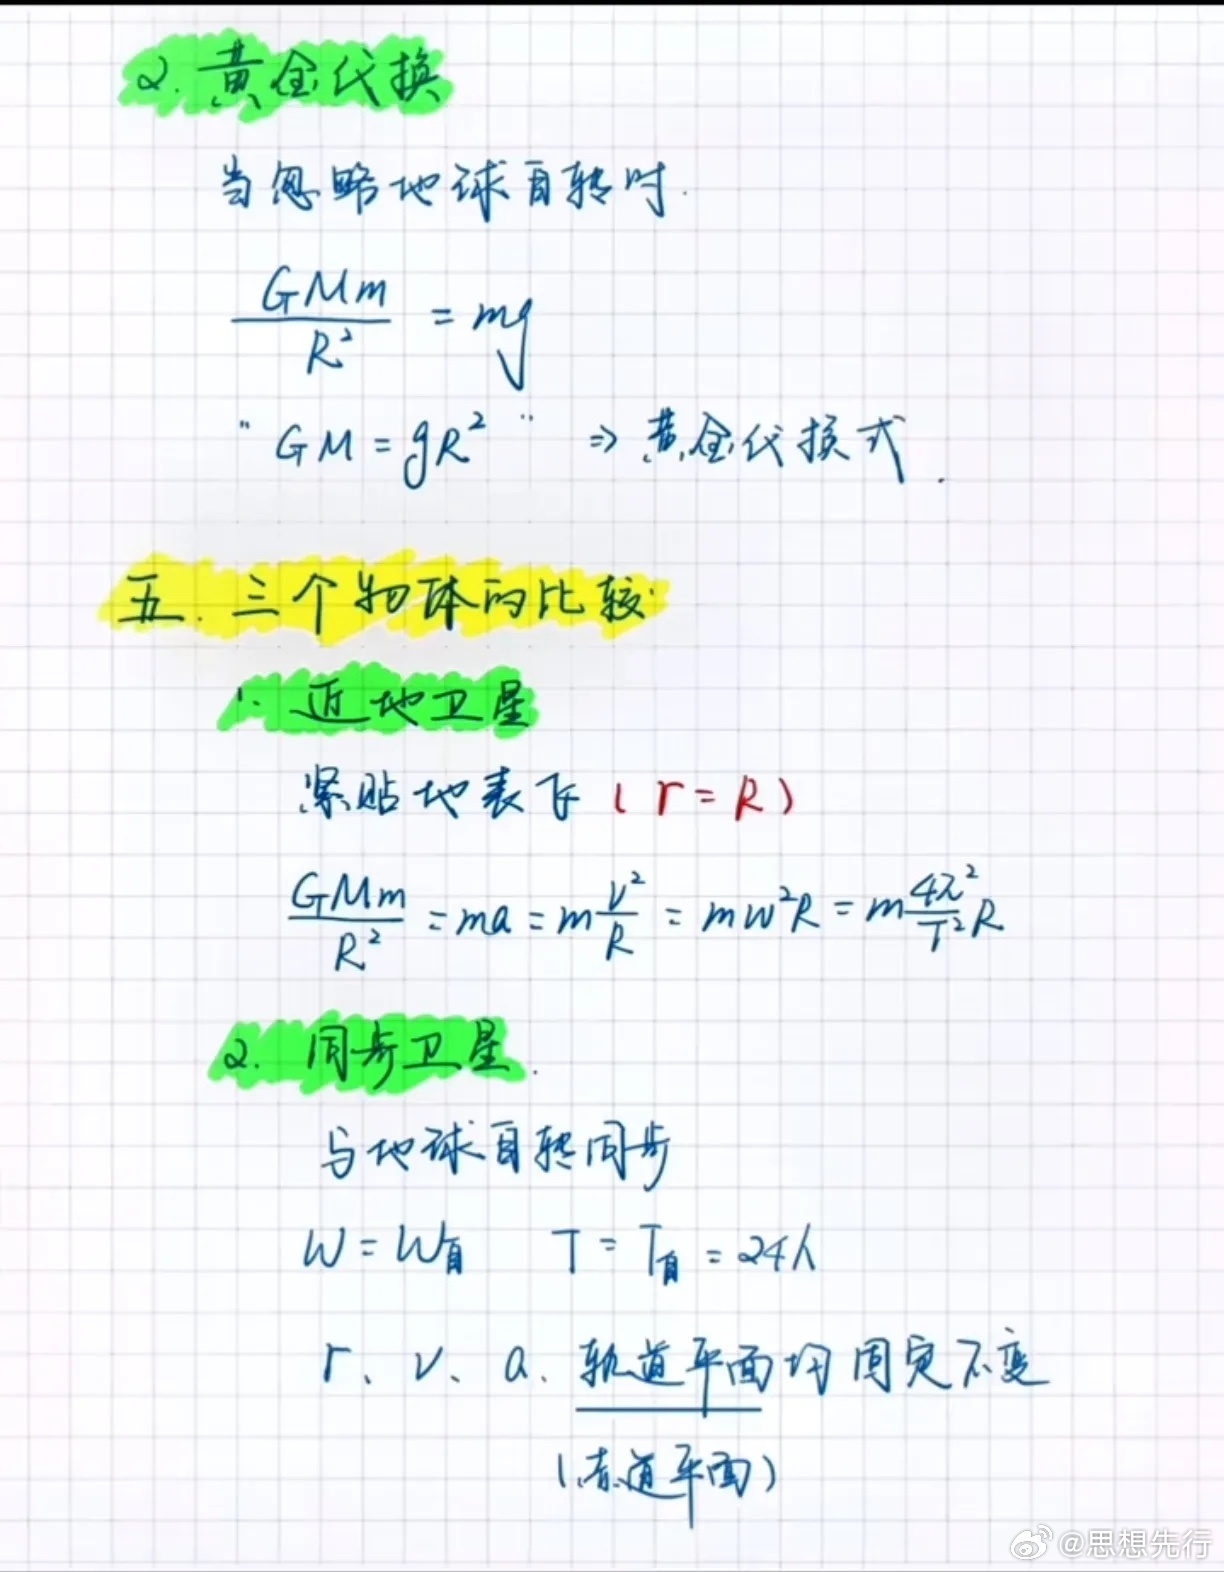 2. 黄金代换
当忽略地球自转时.
GMm/R² = mg
"GM = gR²" ⇒ 黄金代换式.
五. 三个物体的比较
1. 近地卫星
紧贴地表飞 (r = R)
GMm/R² = ma = m v²/R = mw²R = m 4π²/T² R
2. 同步卫星.
与地球自转同步
w = w自 T = T自 = 24h
r、v、a、轨道平面均固定不变
(赤道平面)
@思想先行